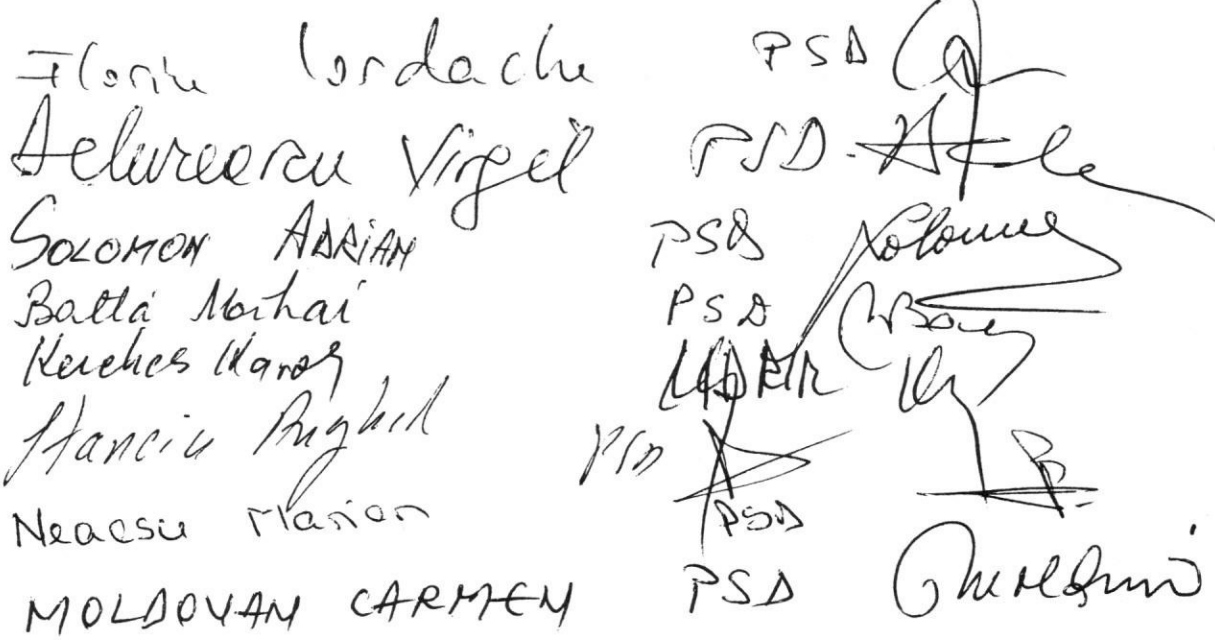 Florin Iordache PSD
Virgil PSD
SOLOMON ADRIAN PSD
Balta Mihai PSD
Kerekes Karoly UDMR
Stanciu Anghel PSD
Neacsu Marian PSD
MOLDOVAN CARMEN PSD